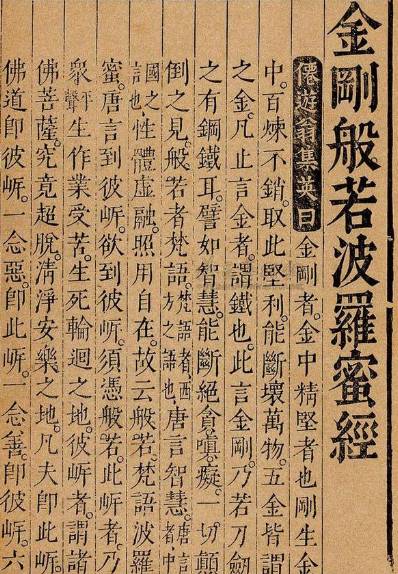 金剛般若波羅蜜經
僊遊翁集英曰金剛者。金中精堅者也剛生金
中。百煉不銷。取此堅利。能斷壞萬物。五金皆謂
之金。凡止言金者。謂鐵也。此言金剛。乃若刀劒
之有鋼鐵耳。譬如智慧。能斷絕貪嗔癡。一切顛
倒之見。般若者梵語。梵語者西方之語也唐言智慧。唐言者中
國之言也性體虛融。照用自在。故云般若。梵語波羅
蜜。唐言到彼岸。欲到彼岸。須憑般若。此岸者。乃
衆平聲生作業受苦。生死輪迴之地。彼岸者。謂諸
佛菩薩。究竟超脫。清淨安樂之地。凡夫即此岸。
佛道即彼岸。一念惡。即此岸。一念善。即彼岸。六